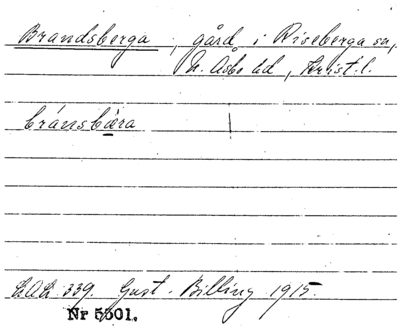 Brandsberga, gård i Riseberga sn,
N. Åsbo hd, Krist. l.
bránsbæra
LAL 339. Gust. Billing 1915.
Nr 5501.